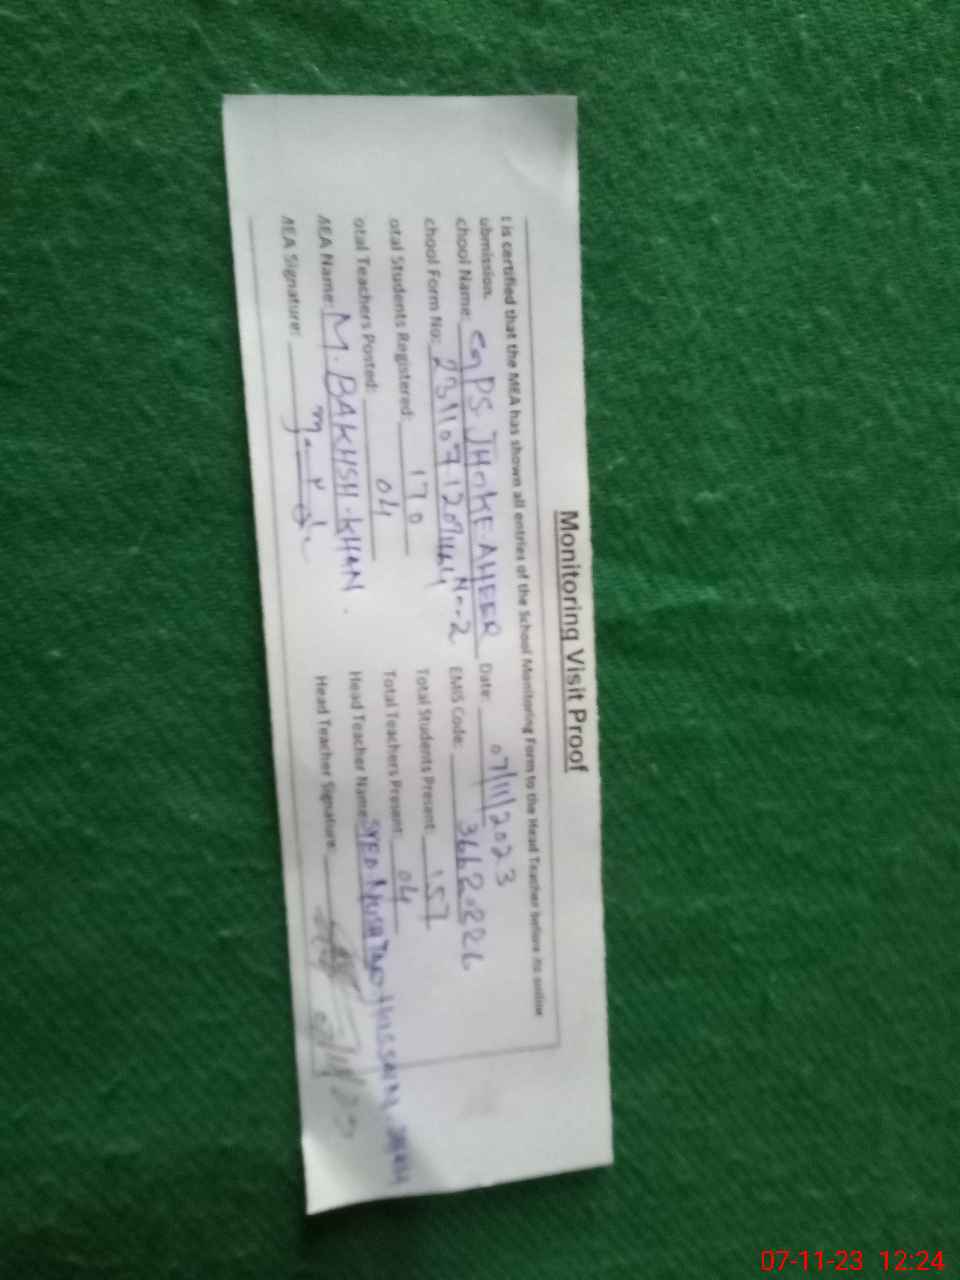 Monitoring Visit Proof
t is certified that the MEA has shown all entries of the School Monitoring Form to the Head Teacher before its online
ubmission.
chool Name: GPS. JHOKE AHEER No-2 Date: 07/11/2023
chool Form No: EMIS Code:
otal Students Registered: 170 Total Students Present: 157
otal Teachers Posted: 04 Total Teachers Present: 04
MEA Name: M. BAKHSH KHAN. Head Teacher Name: SYED HUSSAIN
MEA Signature: Head Teacher Signature:
07-11-23 12:24